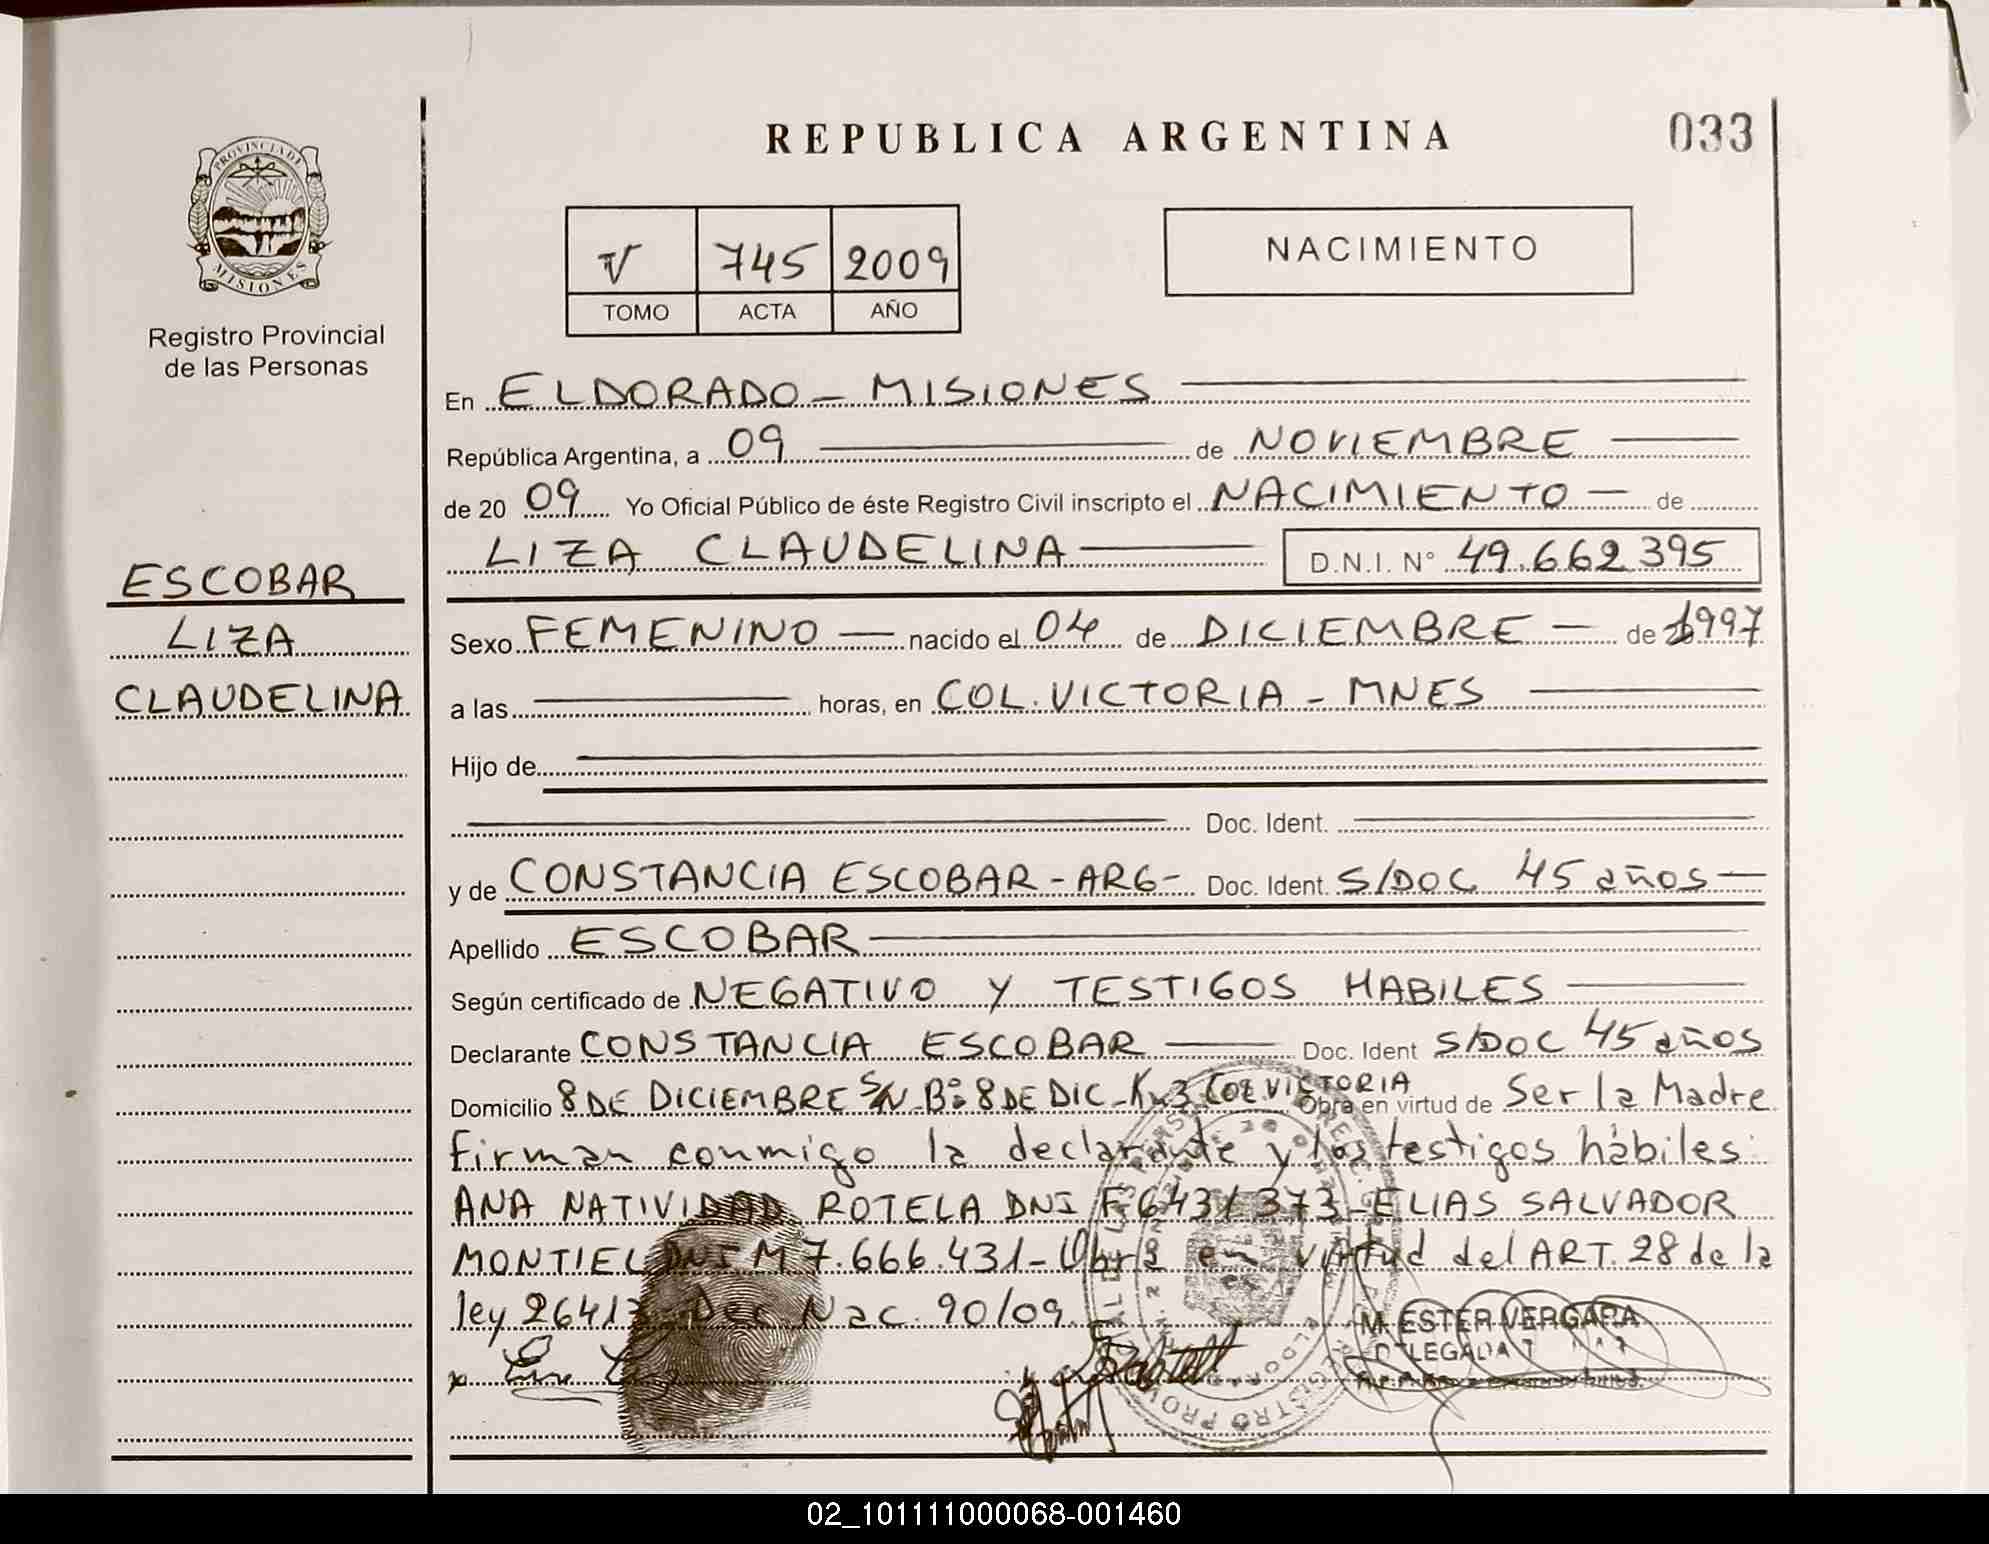 REPUBLICA ARGENTINA
033
PROVINCIA DE
MISIONES
Registro Provincial
de las Personas
V 745 2009
TOMO ACTA AÑO
NACIMIENTO
En ELDORADO - MISIONES
República Argentina, a 09 de NOVIEMBRE
de 20 09 Yo Oficial Público de éste Registro Civil inscripto el NACIMIENTO - de
LIZA CLAUDELINA D.N.I. N° 49.662.395
ESCOBAR
LIZA
CLAUDELINA
Sexo FEMENINO nacido el 04 de DICIEMBRE - de 1997
a las horas, en COL. VICTORIA - MNES
Hijo de
Doc. Ident.
y de CONSTANCIA ESCOBAR - ARG - Doc. Ident. S/DOC 45 años
Apellido ESCOBAR
Según certificado de NEGATIVO Y TESTIGOS HABILES
Declarante CONSTANCIA ESCOBAR Doc. Ident S/DOC 45 años
Domicilio 8 DE DICIEMBRE S/N - B° 8 DE DIC - Km 3 COL. VICTORIA Obra en virtud de Ser la Madre
firman conmigo la declarante y los testigos hábiles:
ANA NATIVIDAD ROTELA DNI F 6431373 - ELIAS SALVADOR
MONTIEL DNI M 7.666.431 - Obra en virtud del ART. 28 de la
ley 26413 Dec Nac. 90/09
M. ESTER VERGARA
DELEGADA
02_101111000068-001460